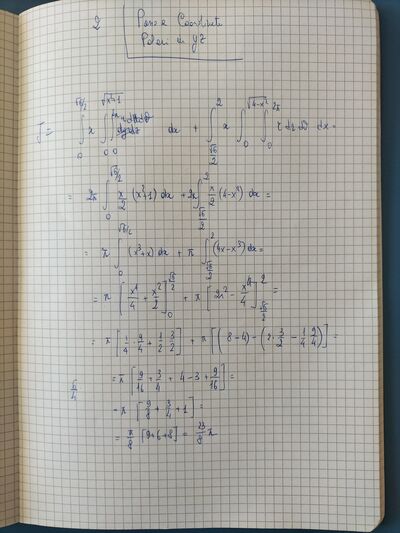 2
Passo a Coordinate
Polari in yz
J = ∫₀^{√6/2} x ∫₀^{√(x²+1)} ∫₀^{2π} dx + ∫_{√6/2}^{2} x ∫₀^{√(4-x²)} ∫₀^{2π} r dr dϑ dx =
= 2π ∫₀^{√6/2} x/2 (x²+1) dx + 2π ∫_{√6/2}^{2} x/2 (4-x²) dx =
= π ∫₀^{√6/2} (x³+x) dx + π ∫_{√6/2}^{2} (4x-x³) dx =
= π [x⁴/4 + x²/2]₀^{√6/2} + π [2x² - x⁴/4]_{√6/2}^{2} =
= π [1/4 · 9/4 + 1/2 · 3/2] + π [(8-4) - (2 · 3/2 - 1/4 · 9/4)] =
6/4
= π [9/16 + 3/4 + 4 - 3 + 9/16] =
= π [9/8 + 3/4 + 1] =
= π/8 [9+6+8] = 23/8 π